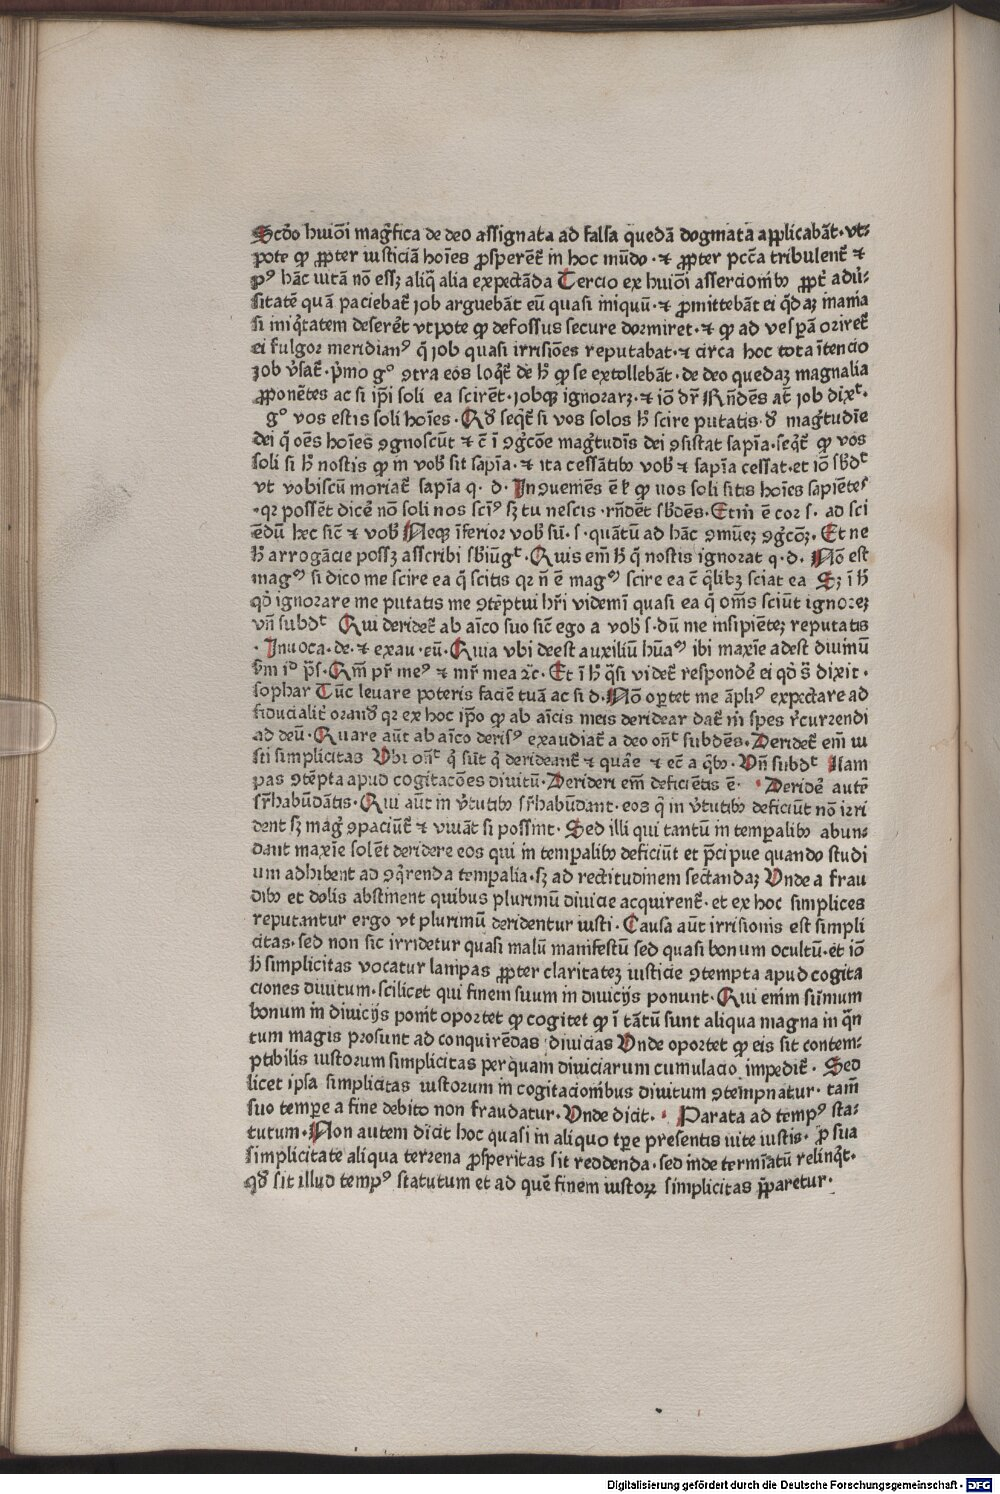 Scđo huiōi mag̃fica de deo assignata ad falsa quedā dogmata applicabāt · vt⸗
pote ꝙ ꝓpter iusticiā hoīes ꝓsperēt̃ in hoc mūdo · ⁊ ꝓpter pcc̃a tribulent̃ ⁊
pꝰ hāc vitā nō essꝫ aliq̃ alia expectāda Tercio ex huiōi assercioībꝫ ꝓpt̃ adũ⸗
sitatē quā paciebat̃ job arguebāt eū quasi iniquū · ⁊ ꝓmittebāt ei q̃daꝫ inania
si iniq̃tatem deseret̃ vtpote ꝙ defossus secure dormiret · ⁊ ꝙ ad vesꝑā oriret̃
ei fulgor meridianꝰ q̃ job quasi irrisiões reputabat · ⁊ circa hoc tota ītencio
job v̄sat̃ · p̄mo gͦ ꝯtra eos loq̃t̃ de h̄ ꝙ se extollebāt · de deo quedaꝫ magnalia
ꝓponētes ac si ip̄i soli ea scirēt · jobqꝫ ignoraꝛꝫ · ⁊ iō dr̃ Rñdēs at̃ job dixᵗ ·
gͦ vos estis soli hoīes · Qđ seqt̃ si vos solos h̄ scire putatis · đ mag̃tudīe
dei q̃ oēs hoīes ꝯgnoscūt ⁊ ē ī ꝯg̃cōe mag̃tudīs dei ꝯsistat sapīa · seq̃t̃ ꝙ vos
soli si h̄ nostis ꝙ in vob̄ sit sapīa · ⁊ ita cessātibꝫ vob̄ ⁊ sapīa cessat · et iō sb̄dᵗ
vt vobiscū moriat̃ sapīa q · d · Inꝯueniēs ē ꝙ vos soli sitis hoīes sapiētes
· qꝛ possēt dicē nō soli nos scīꝰ sꝫ tu nescis · rñdēt sb̄dēs · Et m̄ ē cor s · ad sci
ēdū hec sic̄ ⁊ vob̄ Neqꝫ īferior vob̄ sū · s · quātū ad hāc ꝯmūeꝫ ꝯg̃cōꝫ · Et ne
h̄ arrogācie possꝫ asscribi sb̄iūgᵗ · Quis em̄ h̄ q̃ nostis ignorat q · d · Nō est
magᵐ si dico me scire ea q̃ scitis qꝛ ñ ē magᵐ scire ea ē q̃libꝫ sciat ea Sꝫ ī h̄
qđ ignorare me putatis me ꝯtēptui hr̄i videmī quasi ea q̃ om̄s sciūt ignoreꝫ
vñ subdᵗ Qui deridet̃ ab aīco suo sic̄ ego a vob̄ s · dū me insipiēteꝫ reputatis
· Inuoca · de · ⁊ exau · eū · Quia vbi deest auxiliū hūaᵐ ibi maxīe adest diuinū
s̄m iđ p̄s · Qm̄ pr̃ meꝰ ⁊ mr̃ mea ⁊c̃ · Et ī h̄ q̃si videt̃ respondē ei qđ s̄ dixit ·
sophar Tūc leuare poteris faciē tuā ac si d · Nō oꝑtet me āpliꝰ expectare ad
fiducialit̃ orandū qꝛ ex hoc ip̄o ꝙ ab aīcis meis deridear dat̃ m̄ spes rͤcurrendi
ad deū · Quare aūt ab aīco derisꝰ exaudiat̃ a deo on̄ᵗ subdēs · Deridet̃ em̄ iu
sti simplicitas Vbi on̄ᵗ q̃ sūt q̃ derideant̃ ⁊ quāe ⁊ ec̄ a qͥbꝫ · Vñ subdᵗ Nam
pas ꝯtēpta apud cogitacōes diuitū · Derideri em̄ deficiētis ē · · Deridē autē
sr̄habūdātis · Qui aūt in v̄tutibꝫ sr̄habūdant · eos q̃ in v̄tutibꝫ deficiūt nō irri
dent sꝫ mag̃ ꝯpaciūt̃ ⁊ viuāt si possint · Sed illi qui tantū in tempaͬlibꝫ abun⸗
dant maxīe solēt deridere eos qui in temꝑalibꝫ deficiūt et p̄cipue quando studi
um adhibent ad ꝯq̃renda temꝑalia · sꝫ ad rectitudinem sectandaꝫ Vnde a frau
dibꝫ et dolis abstinent quibus plurimū diuicie acquirent̃ · et ex hoc simplices
reputantur ergo vt plurimū deridentur iusti · Causa aūt irrisionis est simpli
citas · sed non sic irridetur quasi malū manifestū sed quasi bonum ocultū · et iō
h̄ simplicitas vocatur lampas ꝓpter claritateꝫ iusticie ꝯtempta apud cogita
ciones diuitum · scilicet qui finem suum in diuicijs ponunt · Qui enim sūmum
bonum in diuicijs ponit oportet ꝙ cogitet ꝙ ī tātū sunt aliqua magna in q̃n
tum magis prosunt ad conquirēdas diuicias Vnde oportet ꝙ eis sit contem⸗
ptibilis iustorum simplicitas per quam diuiciarum cumulacio impedit̃ · Sed
licet ipsa simplicitas iustorum in cogitacionibus diuitum ꝯtempnatur · tam̄
suo temꝑe a fine debito non fraudatur · Vnde dicit · · Parata ad tempꝰ sta⸗
tutum · Non autem dicit hoc quasi in aliquo tꝑe presentis uite iustis · ꝓ sua
simplicitate aliqua terrena ꝓsperitas sit reddenda · sed inde termīatū relinq̃t ·
qđ sit illud tempꝰ statutum et ad quē finem iustoꝝ simplicitas p̄paretur ·
Digitalisierung gefördert durch die Deutsche Forschungsgemeinschaft · DFG